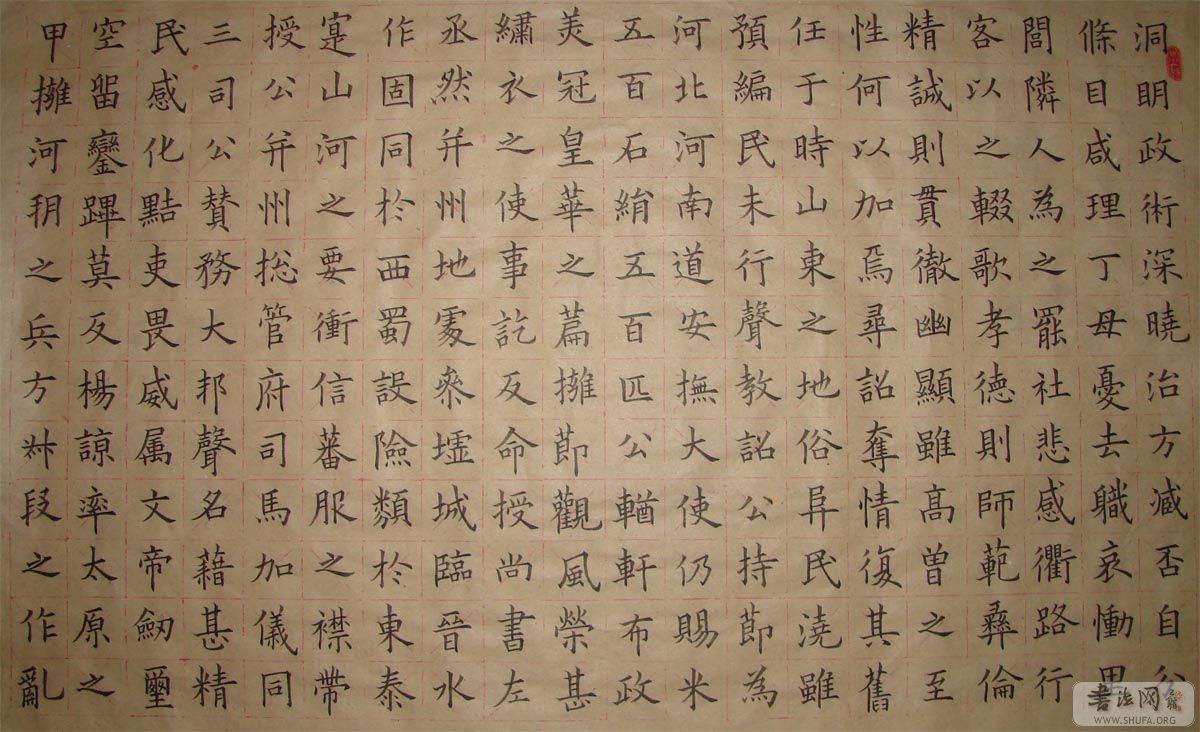 洞明政術深曉治方臧否自公
條目咸理丁母憂去職哀慟里
閭隣人為之罷社悲感衢路行
客以之輟歌孝徳則師範彝倫
精誠則貫徹幽顯雖高曽之至
性何以加焉尋詔奪情復其舊
任于時山東之地俗阜民澆雖
預編民未行聲教詔公持節為
河北河南道安撫大使仍賜米
五百石絹五百匹公輶軒布政
美冠皇華之篇擁節觀風榮甚
繡衣之使事訖反命授尚書左
丞然并州地處參墟城臨晉水
作固同於西蜀設險類於東泰
寔山河之要衝信蕃服之襟帶
授公并州総管府司馬加儀同
三司公賛務大邦聲名藉甚精
民感化黠吏畏威属文帝劒璽
空留鑾蹕莫反楊諒率太原之
甲擁河朔之兵方叔段之作亂
书法网
WWW.SHUFA.ORG